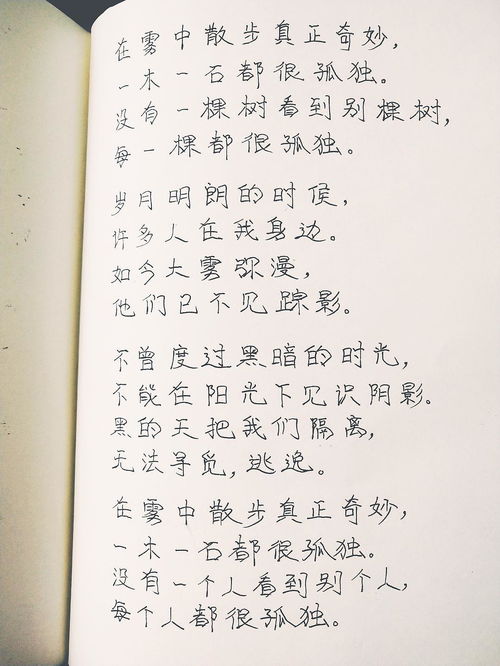 在雾中散步真正奇妙，
一木一石都很孤独。
没有一棵树看到别棵树，
每一棵都很孤独。
岁月明朗的时候，
许多人在我身边。
如今大雾弥漫，
他们已不见踪影。
不曾度过黑暗的时光，
不能在阳光下见识阴影。
黑的天把我们隔离，
无法寻觅，逃逸。
在雾中散步真正奇妙，
一木一石都很孤独。
没有一个人看到别个人，
每个人都很孤独。